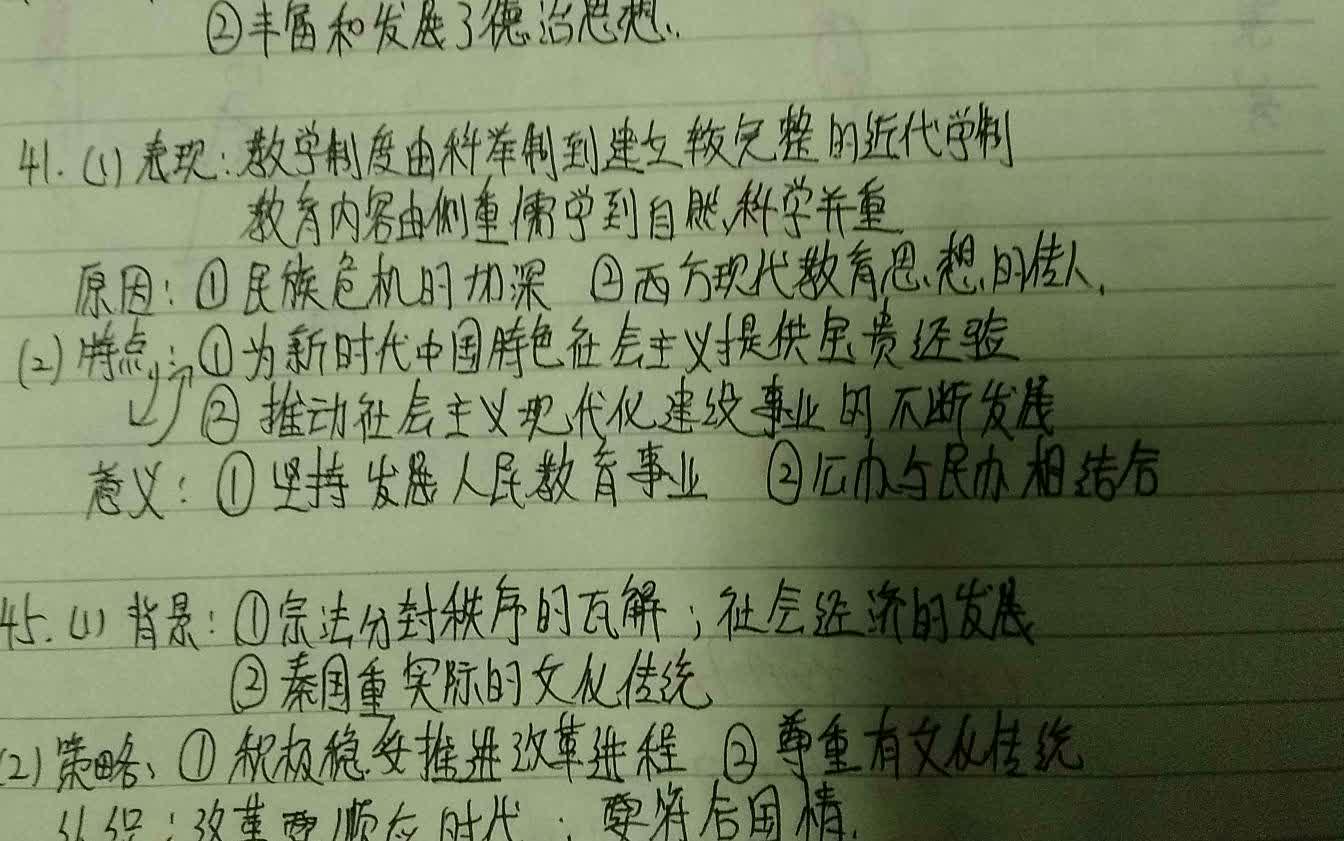 ②丰富和发展了德治思想.
41. (1) 表现: 教学制度由科举制到建立较完整的近代学制
教育内容由侧重儒学到自然科学并重
原因: ①民族危机的加深 ②西方现代教育思想的传入.
(2) 特点: ①为新时代中国特色社会主义提供宝贵经验
②推动社会主义现代化建设事业的不断发展
意义: ①坚持发展人民教育事业 ②公办与民办相结合
45. (1) 背景: ①宗法分封秩序的瓦解; 社会经济的发展
②秦国重实际的文化传统
(2) 策略: ①积极稳妥推进改革进程 ②尊重有文化传统
认识: 改革要顺应时代; 要符合国情.